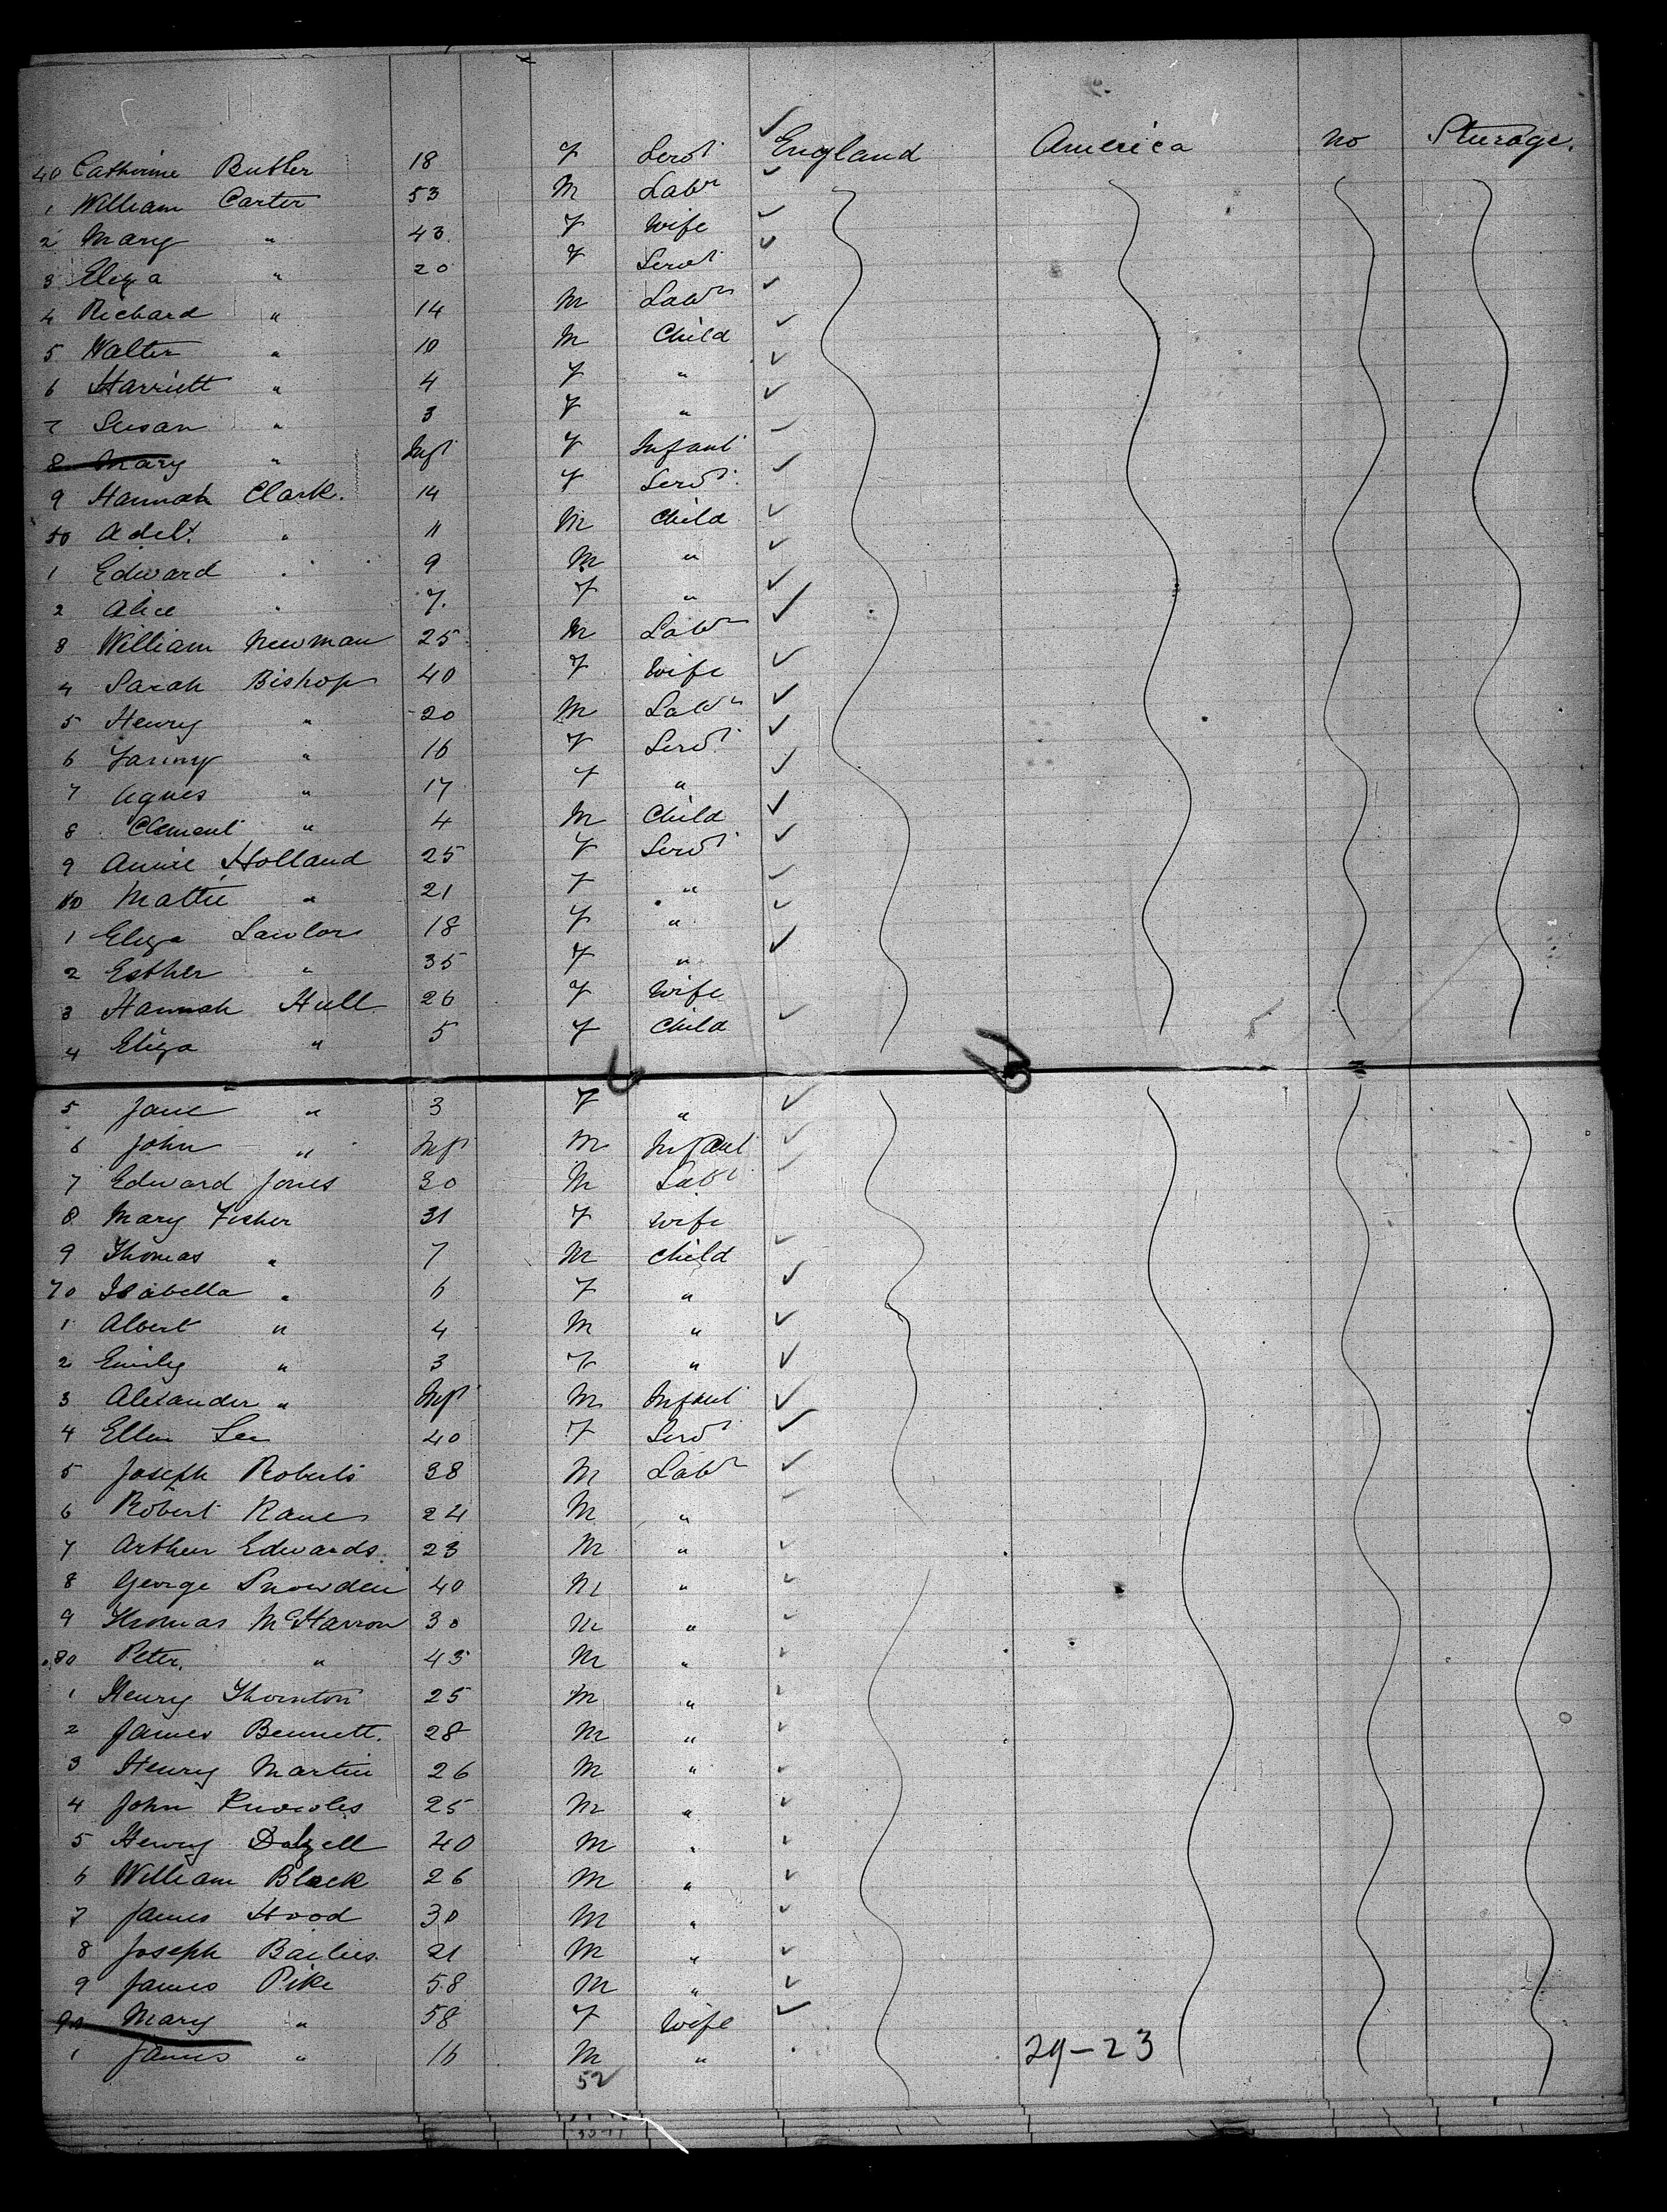 40 Catherine Butler 18 F Servt England America no Steerage.
1 William Carter 53 M Labr
2 Mary " 43 F Wife
3 Eliza " 20 F Servt
4 Richard " 14 M Labr
5 Walter " 10 M Child
6 Harriett " 4 F "
7 Susan " 3 F "
8 Mary " Inft F Infant
9 Hannah Clark. 14 F Servt
50 Adelt. " 11 M Child
1 Edward " 9 M "
2 Alice " 7. F "
3 William Newman 25 M Labr
4 Sarah Bishop 40 F Wife
5 Henry " 20 M Labr
6 Fanny " 16 F Servt
7 Agnes " 17 F "
8 Clement " 4 M Child
9 Annie Holland 25 F Servt
60 Mattie " 21 F "
1 Eliza Lawlor 18 F "
2 Esther " 35 F "
3 Hannah Hull 26 F Wife
4 Eliza " 5 F Child
5 Jane " 3 F "
6 John " Inft M Infant
7 Edward Jones 30 M Labr
8 Mary Fisher 31 F Wife
9 Thomas " 7 M Child
70 Isabella " 6 F "
1 Albert " 4 M "
2 Emily " 3 F "
3 Alexander " Inft M Infant
4 Ellen Lee 40 F Servt
5 Joseph Roberts 38 M Labr
6 Robert Kane 24 M "
7 Arthur Edwards 23 M "
8 George Snowden 40 M "
9 Thomas McHarron 30 M "
80 Peter. " 43 M "
1 Henry Thornton 25 M "
2 James Bennett. 28 M "
3 Henry Martin 26 M "
4 John Knowles 25 M "
5 Henry Dalzell 40 M "
6 William Black 26 M "
7 James Hood 30 M "
8 Joseph Bailies. 21 M "
9 James Pike 58 M "
90 Mary " 58 F Wife
1 James " 16 M " 29-23
52